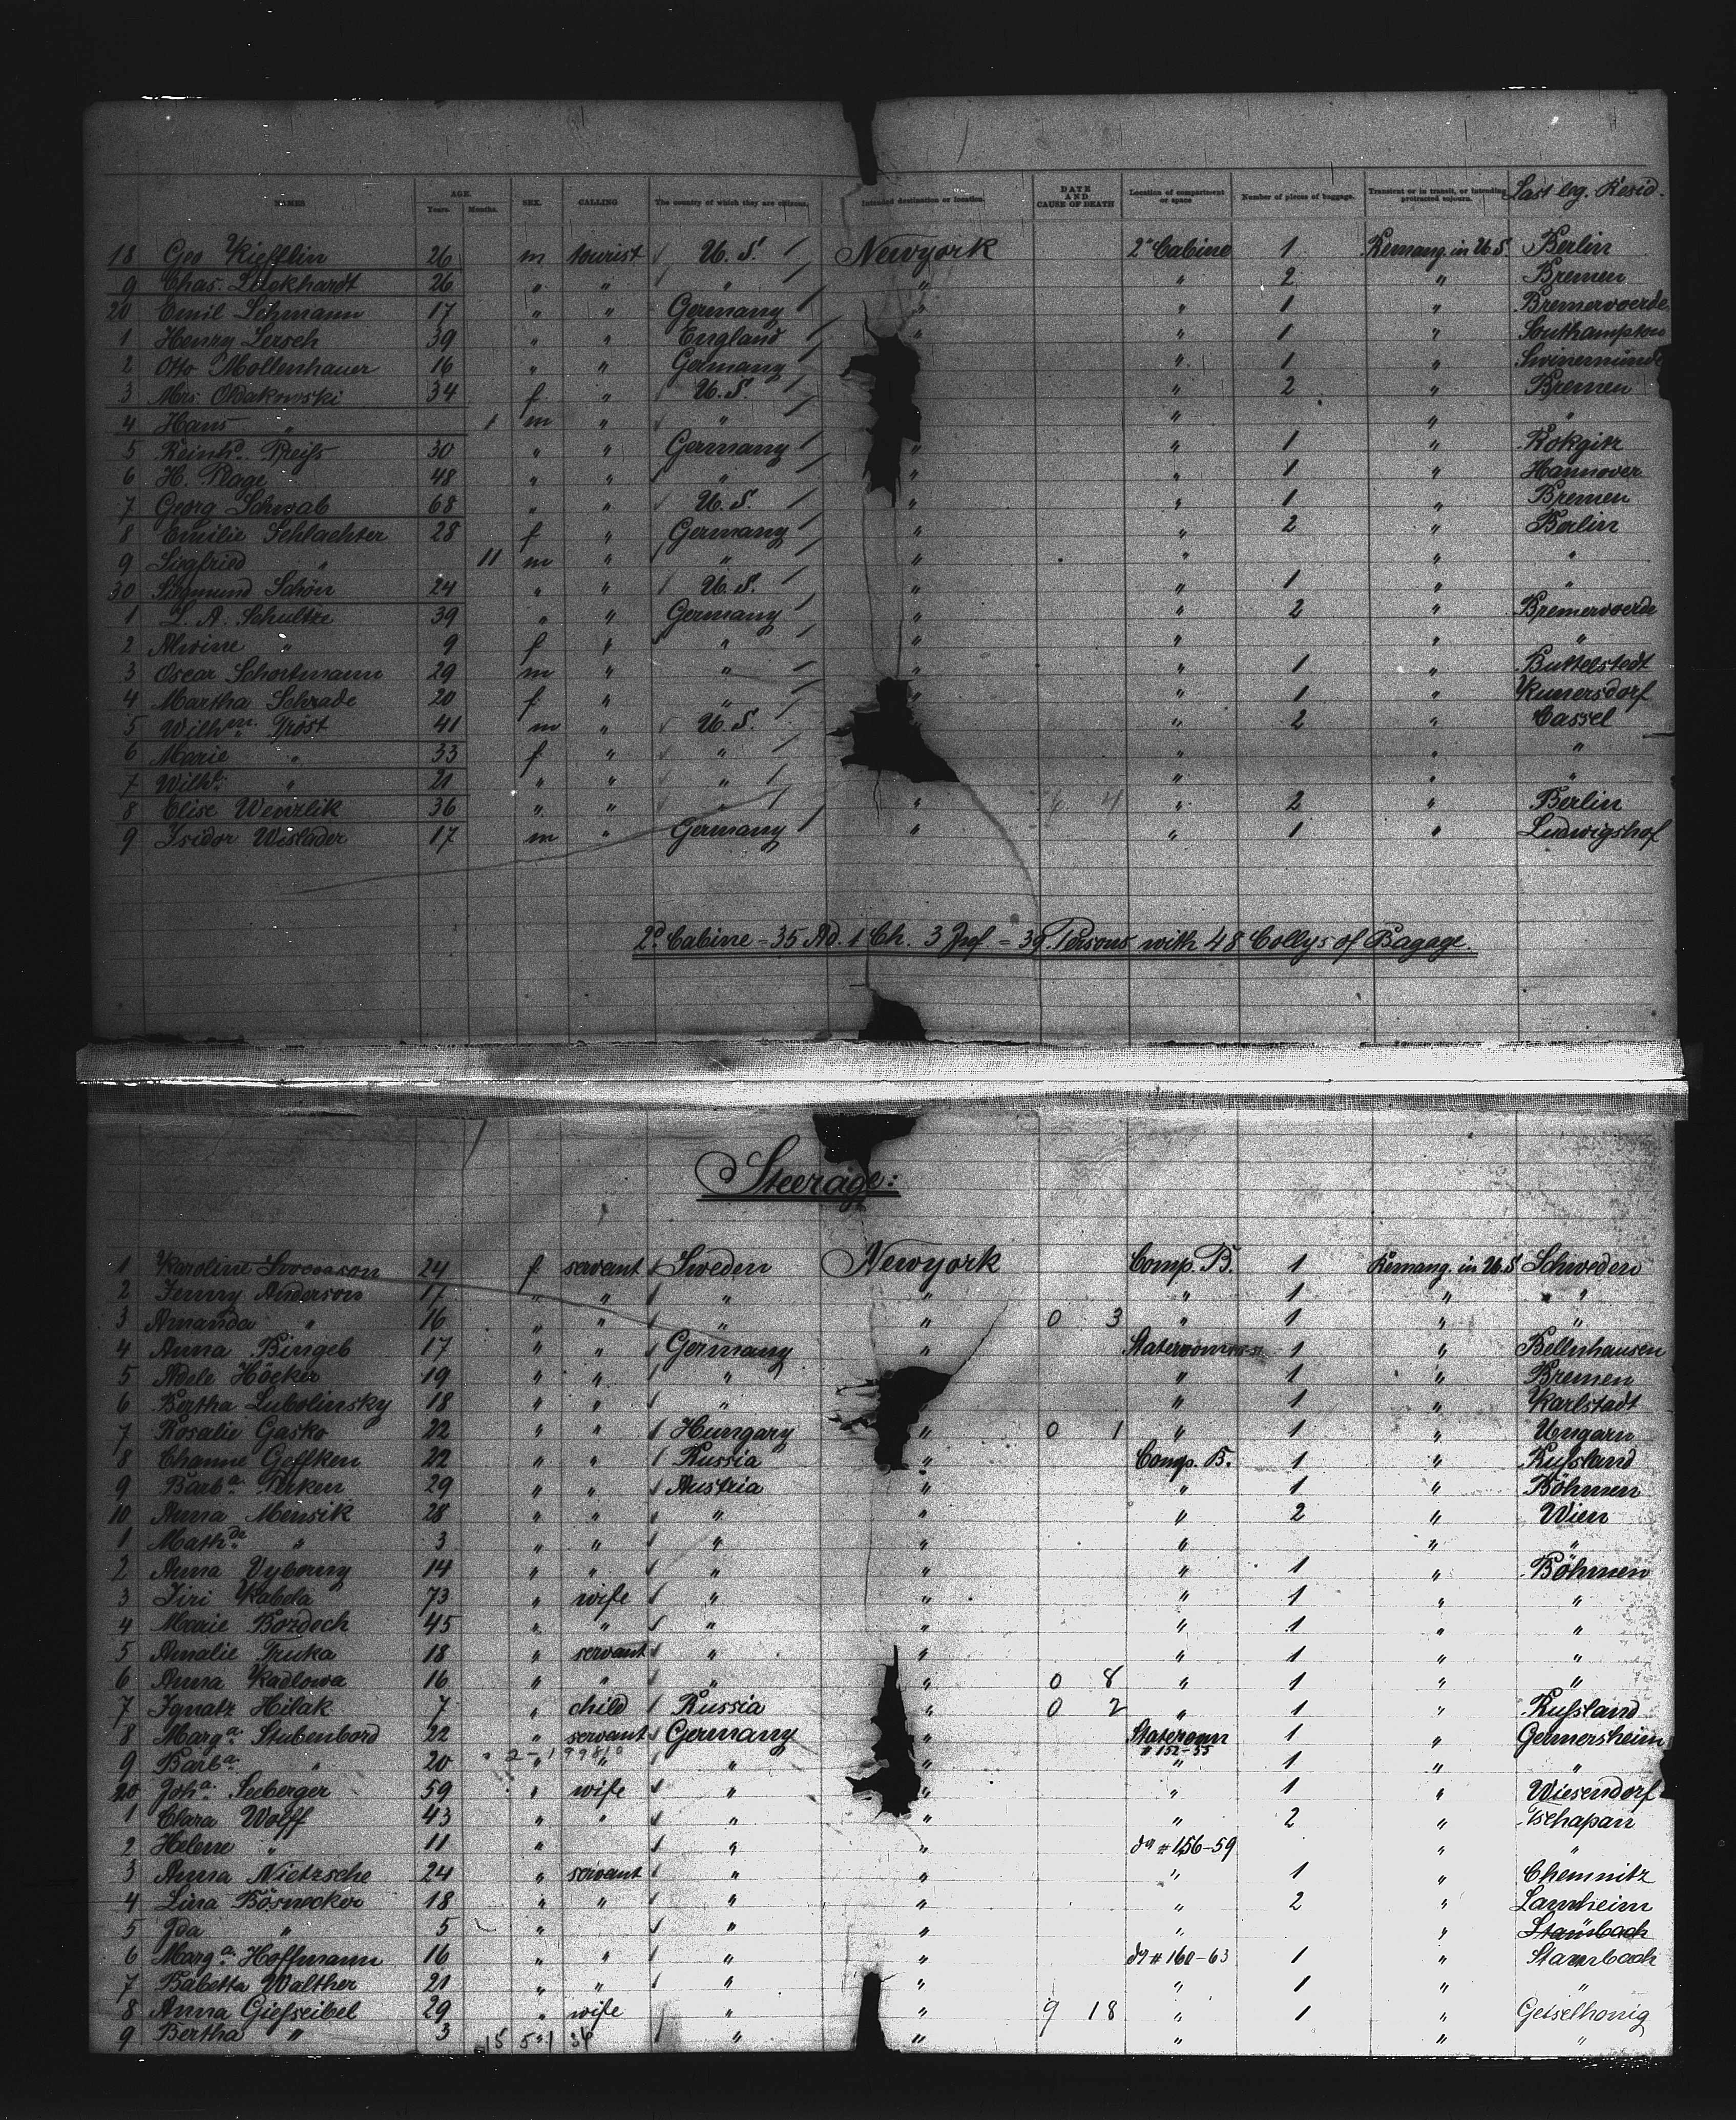 NAMES AGE. Years. Months. SEX. CALLING The country of which they are citizens. Intended destination or location. DATE AND CAUSE OF DEATH Location of compartment or space Number of pieces of baggage. Transient or in transit, or intending protracted sojourn. Last leg. Resid.
18 Geo Kiefflin 26 m tourist U. S. Newyork 2" Cabine 1 Remang. in U. S. Berlin
9 Chas. Luckhardt 26 " " " " " 2 " Bremen
20 Emil Lehmann 17 " " Germany " " 1 " Bremervoerde
1 Henry Lersch 39 " " England " " 1 " Southampton
2 Otto Mollenhauer 16 " " Germany " 1 " Swinemünde
3 Mrs. Oldakowski 34 f " U. S. " 2 " Bremen
4 Hans " 1 m " " " " "
5 Reinhd. Preifs 30 " " Germany " " 1 " Rokgitz
6 H. Plage 48 " " " " " 1 " Hannover
7 Georg Schwab 68 " " U. S. " " 1 " Bremen
8 Emilie Schlachter 28 f " Germany " " 2 " Berlin
9 Siegfried " 11 m " " " " " "
30 Sigmund Schön 24 " " U. S. " " 1 " "
1 L. A. Schultze 39 " " Germany " " 2 " Bremervoerde
2 Alwine " 9 f " " " " " "
3 Oscar Schortmann 29 m " " " " 1 " Buttelstedt
4 Martha Schrade 20 f " " " " 1 " Kunersdorf
5 Wilhm. Trost 41 m " U. S. " 2 " Cassel
6 Marie " 33 f " " " " "
7 Wilhe. " 21 " " " " " "
8 Elise Wenzlik 36 " " " " " 2 " Berlin
9 Isidor Wislader 17 m " Germany " " 1 " Ludwigshof
2d. Cabine - 35 Ad. 1 Ch. 3 Inf = 39. Persons with 48 Collys of Bagage.
Steerage:
1 Karoline Swensson 24 f servant Sweden Newyork Comp. B. 1 Remang. in U. S Schweden
2 Jenny Anderson 17 " " " " " 1 " "
3 Amanda " 16 " " " " 0 3 " 1 " "
4 Anna Bingeb 17 " " Germany " Stateroom 1 " Bellnhausen
5 Adele Höcker 19 " " " " 1 " Bremen
6 Bertha Lubolinsky 18 " " " " 1 " Karlstadt
7 Rosalie Gasko 22 " " Hungary " 0 1 " 1 " Ungarn
8 Channe Goffken 22 " " Russia " Comp. B. 1 " Rufsland
9 Barba. Terken 29 " " Austria " " 1 " Böhmen
10 Anna Mensik 28 " " " " " 2 " Wien
1 Mathde. " 3 " " " " " " "
2 Anna Vyborny 14 " " " " " 1 " Böhmen
3 Jiri Kabela 73 " wife " " " 1 " "
4 Marie Bozdech 45 " " " " " 1 " "
5 Amalie Truka 18 " servant " " " 1 " "
6 Anna Kadlowa 16 " " " " 0 8 " 1 " "
7 Ignatz Hilak 7 " child Russia " 0 2 " 1 " Rufsland
8 Marga. Stubenbord 22 " servant Germany " Stateroom # 152-55 1 " Germersheim
9 Barba. " 20 " " " " " 1 " "
20 Joha. Seeberger 59 " wife " " " 1 " Wiesendorf
1 Clara Wolff 43 " " " " " 2 " Tschapan
2 Helene " 11 " " " do # 156-59 " "
3 Anna Nietzsche 24 " servant " " " 1 " Chemnitz
4 Lina Bösnecker 18 " " " " " 2 " Lannheim
5 Ida " 5 " " " " " Stambach
6 Marga. Hoffmann 16 " " " " do # 160-63 1 " Stambach
7 Babetta Walther 21 " " " " " 1 " "
8 Anna Giefseibel 29 " wife " " 9 18 " 1 " Geiselhonig
9 Bertha " 3 " " " " "